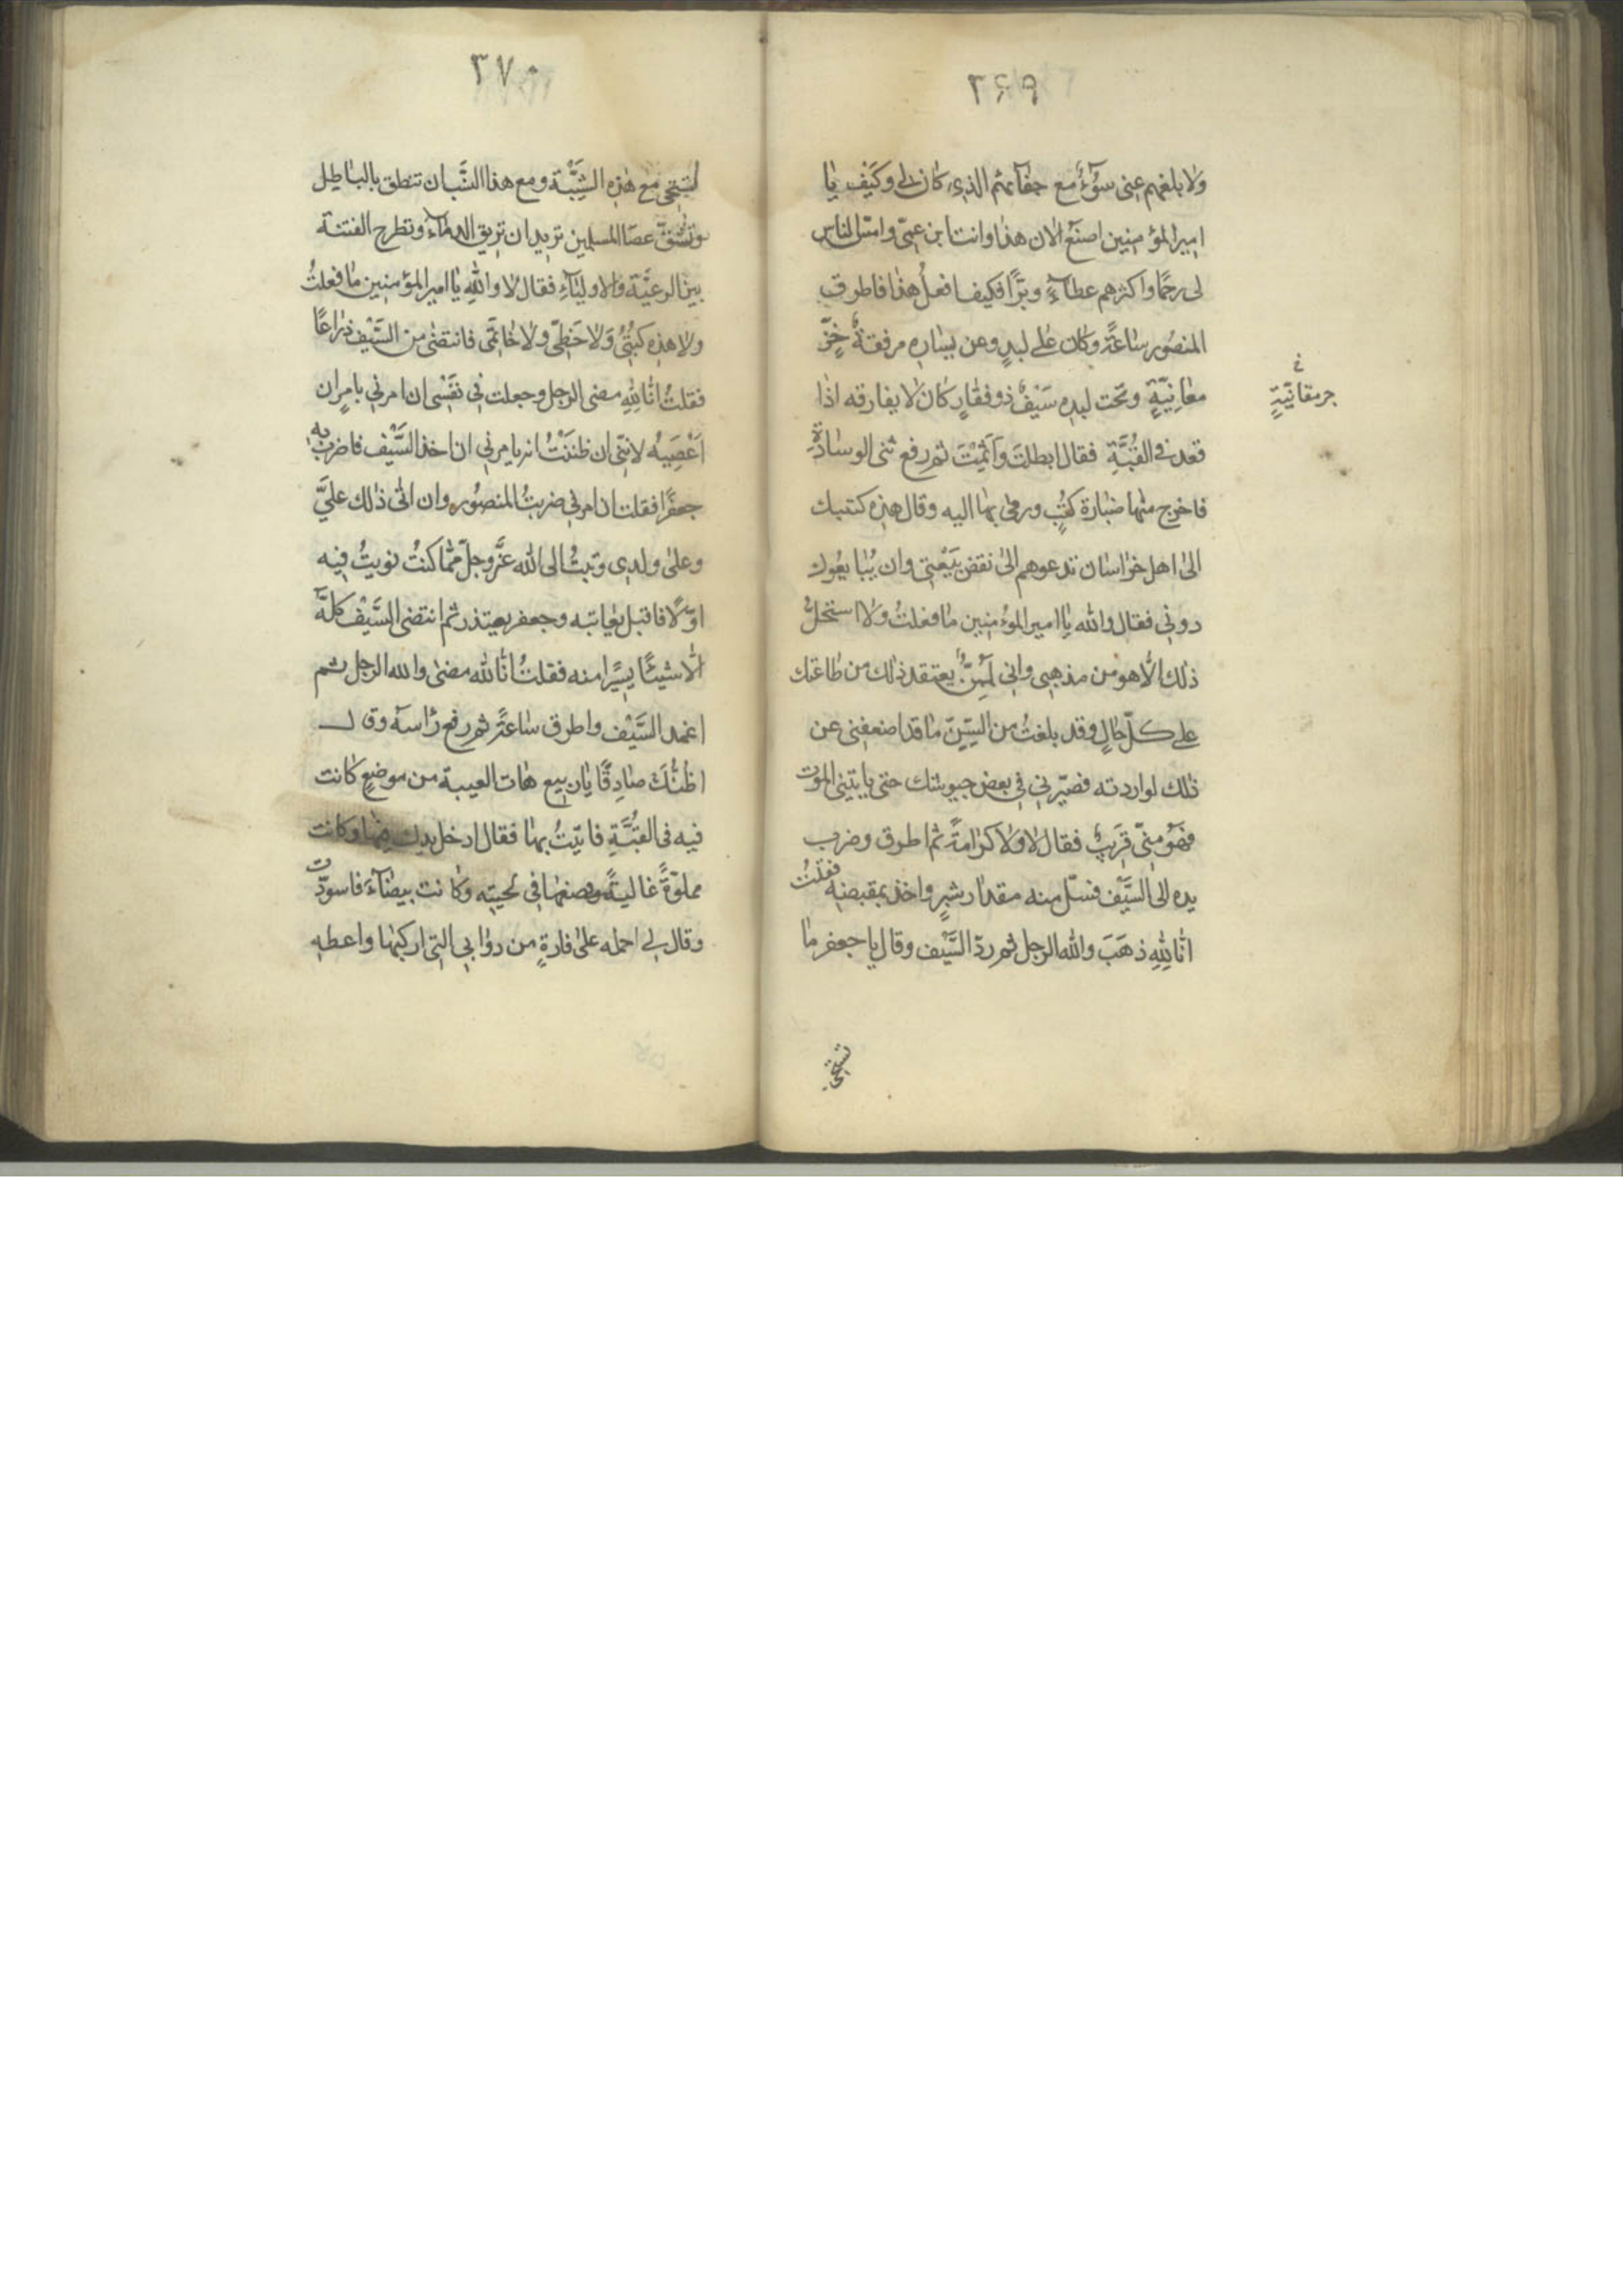 ٣٦٩
ولا بلغهم عنى سوء مع جفائهم الذي كان لي وكيف يا
امير المؤمنين اصنع الآن هذا وانت ابن عمّى وامسّ الناس
لى رحمًا واكثرهم عطاءً وبرًّا فكيف افعل هذا فاطرق
المنصور ساعةً وكان على لبدٍ وعن يساره مرفقة خزّ
معانيّةٍ وتحت لبده سيفٌ ذو فقارٍ كان لا يفارقه اذا
جرمقانيّةٍ خ
قعد في القبّة فقال ابطلت واثمت ثم رفع ثنى الوسادة
فاخرج منها ضبارة كتبٍ ورمى بها اليه وقال هذه كتبك
الى اهل خراسان تدعوهم الى نقض بيعتي وان يبايعوك
دوني فقال والله يا امير المؤمنين ما فعلتُ ولا استحلّ
ذلك الّا هو من مذهبى وانى لمن يعتقد ذلك من طاعتك
على كلّ حالٍ وقد بلغتُ من السّنّ ما قد اضعفنى عن
ذلك لو اردته فصيّرني في بعض جيوشك حتى يأتيني الموت
فهو منّى قريبٌ فقال لا ولا كرامةً ثم اطرق وضرب
يده الى السّيف فسلّ منه مقدار شبرٍ واخذ بمقبضه فقلتُ
انّا لله ذهبَ والله الرجل ثم ردّ السّيف وقال يا جعفر ما
تستحى
٣٧٠
تستحى مع هذه الشيبة ومع هذا النسب ان تنطق بالباطل
وتشقّ عصا المسلمين تريد ان تريق الدماء وتطرح الفتنة
بين الرعيّة والاولياء فقال لا والله يا امير المؤمنين ما فعلتُ
ولا هذه كتبى ولا خطّى ولا خاتمى فانتضى من السّيف ذراعًا
فقلتُ انّا لله مضى الرجل وجعلت في نفسى ان امرني بامرٍ ان
اعصيه لانّنى ظننتُ انه يامرني ان اخذ السّيف فاضرب به
جعفرًا فقلت ان امرني ضربتُ المنصور وان اتى ذلك عليَّ
وعلى ولدى وتبتُ الى الله عزّ وجلّ ممّا كنتُ نويتُ فيه
اوّلًا فاقبل يعاتبه وجعفر يعتذر ثم انتضى السّيف كلّه
الّا شيئًا يسيرًا منه فقلتُ انّا لله مضى والله الرجل ثم
اغمد السّيف واطرق ساعةً ثم رفع رأسه وقال
اظنّك صادقًا يا ربيع هات العيبة من موضعٍ كانت
فيه فى القبّة فاتيتُ بها فقال ادخل يدك فيها وكانت
مملوّةً غاليةً وضعها في لحيته وكانت بيضاء فاسودّت
وقال لي احمله على فارةٍ من دوابي التي اركبها واعطه